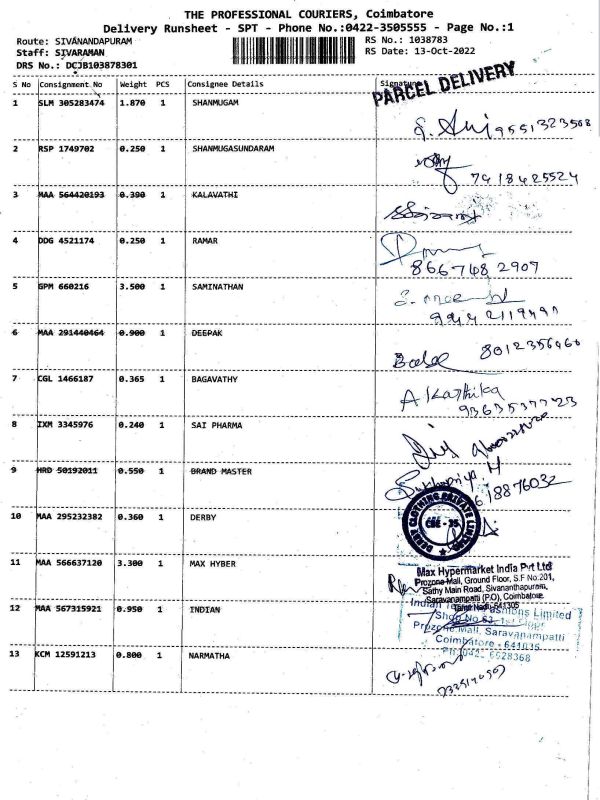 THE PROFESSIONAL COURIERS, Coimbatore
Delivery Runsheet - SPT - Phone No.:0422-3505555 - Page No.:1
Route: SIVANANDAPURAM RS No.: 1038783
Staff: SIVARAMAN RS Date: 13-Oct-2022
DRS No.: DCJB103878301
S No Consignment No Weight PCS Consignee Details Signature
PARCEL DELIVERY
1 SLM 305283474 1.870 1 SHANMUGAM
9551323568
2 RSP 1749702 0.250 1 SHANMUGASUNDARAM
7418425524
3 MAA 564420193 0.390 1 KALAVATHI
4 DDG 4521174 0.250 1 RAMAR
866748 2909
5 GPM 660216 3.500 1 SAMINATHAN
6 MAA 291440464 0.900 1 DEEPAK
7 CGL 1466187 0.365 1 BAGAVATHY
A Karthika
8 IXM 3345976 0.240 1 SAI PHARMA
9 HRD 50192011 0.550 1 BRAND MASTER
618876032
10 MAA 295232382 0.360 1 DERBY
DERBY CLOTHING PRIVATE LIMITED
CBE - 35
11 MAA 566637120 3.300 1 MAX HYBER
Max Hypermarket India Pvt Ltd
Prozone Mall, Ground Floor, S.F No.201,
Sathy Main Road, Sivananthapuram,
Saravanampatti (P.O), Coimbatore.
Tamil Nadu, 641305
12 MAA 567315921 0.950 1 INDIAN
Indian Fashions Limited
Shop No
Prozone Mall, Saravanampatti
Coimbatore - 641035
13 KCM 12591213 0.800 1 NARMATHA